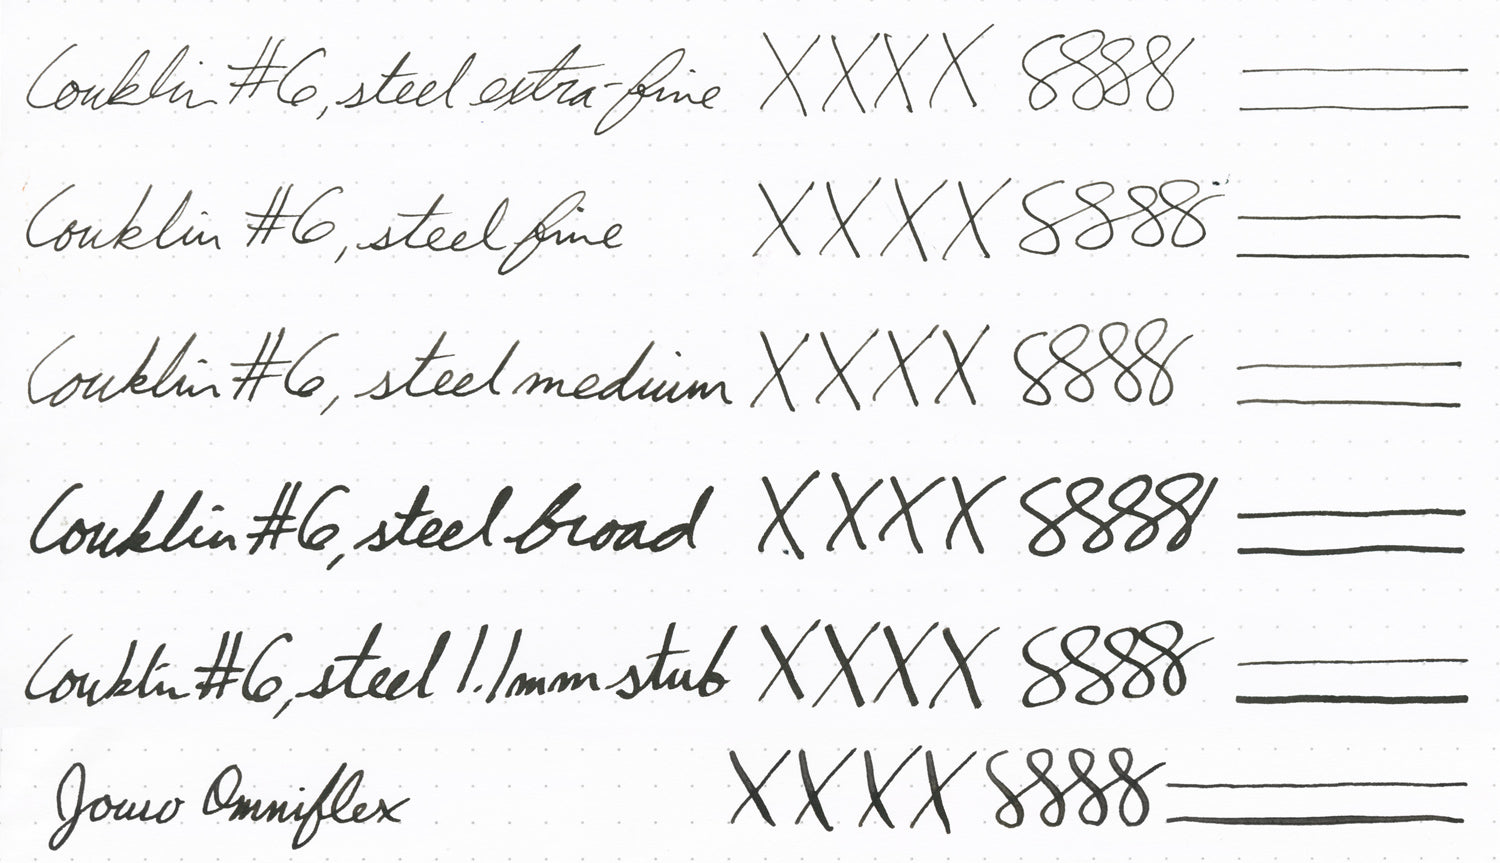 Conklin #6, steel extra-fine XXXX 8888
Conklin #6, steel fine XXXX 8888
Conklin #6, steel medium XXXX 8888
Conklin #6, steel broad XXXX 8888
Conklin #6, steel 1.1mm stub XXXX 8888
Jowo Omniflex XXXX 8888